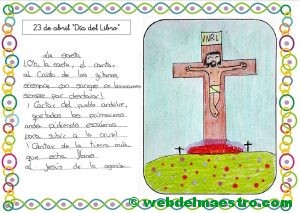 23 de abril "Día del Libro"
La saeta
¡Oh, la saeta, el cantar
al Cristo de los gitanos,
siempre con sangre en las manos
siempre por desclavar!
¡Cantar del pueblo andaluz,
que todas las primaveras
anda pidiendo escaleras
para subir a la cruz!
¡Cantar de la tierra mía
que echa flores
al Jesús de la agonía
INRI
© webdelmaestro.com